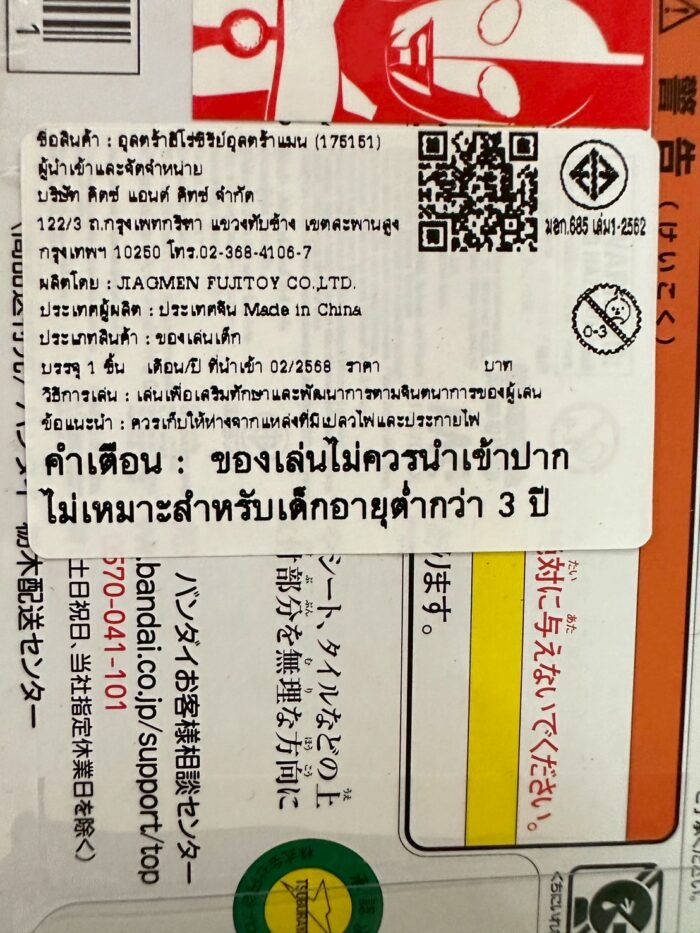 ชื่อสินค้า : อุลตร้าฮีโร่ซีรีย์อุลตร้าแมน (175151)
ผู้นำเข้าและจัดจำหน่าย
บริษัท คิตซ์ แอนด์ คิทซ์ จำกัด
122/3 ถ.กรุงเทพกรีฑา แขวงทับช้าง เขตสะพานสูง
กรุงเทพฯ 10250 โทร.02-368-4106-7
ผลิตโดย : JIAGMEN FUJITOY CO.,LTD.
ประเทศผู้ผลิต : ประเทศจีน Made in China
ประเภทสินค้า : ของเล่นเด็ก
บรรจุ 1 ชิ้น เดือน/ปี ที่นำเข้า 02/2568 ราคา บาท
วิธีการเล่น : เล่นเพื่อเสริมทักษะและพัฒนาการตามจินตนาการของผู้เล่น
ข้อแนะนำ : ควรเก็บให้ห่างจากแหล่งที่มีเปลวไฟและประกายไฟ
คำเตือน : ของเล่นไม่ควรนำเข้าปาก
ไม่เหมาะสำหรับเด็กอายุต่ำกว่า 3 ปี
มอก.685 เล่ม1-2562
0-3
1
警告
(けいこく)
対に与えないでください。
ります。
シート、タイルなどの上
部分を無理な方向に
バンダイお客様相談センター
.bandai.co.jp/support/top
570-041-101
土日祝日、当社指定休業日を除く)
栃木配送センター
TSUBURAYA